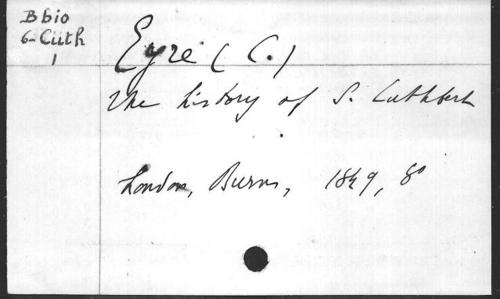 B bio
6- Cuth
1
Eyre (C.)
The history of S. Cuthbert
London, Burns, 1849, 8°